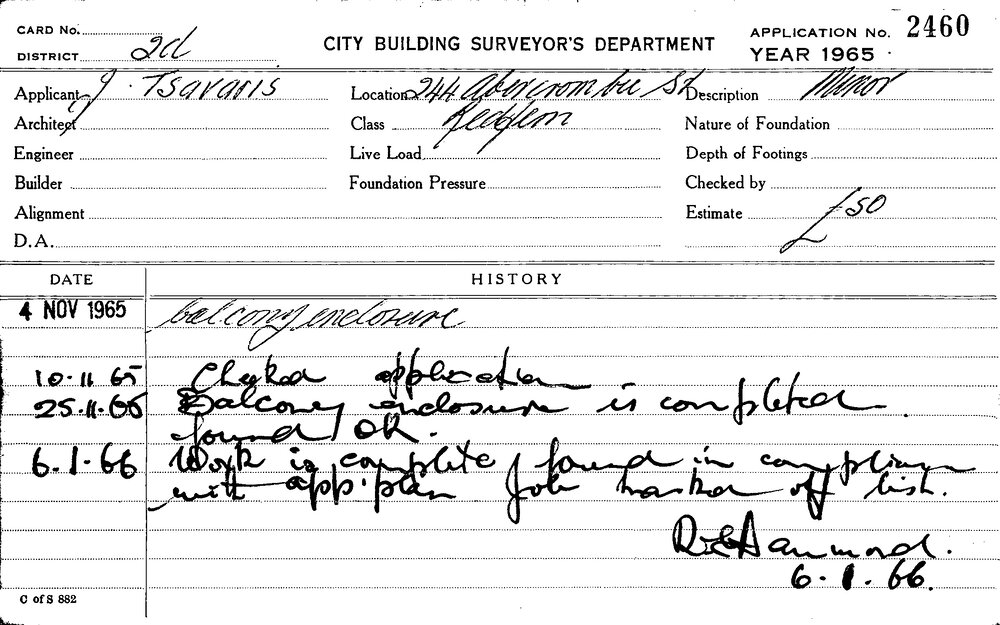 CARD No.
DISTRICT 2d
CITY BUILDING SURVEYOR'S DEPARTMENT
APPLICATION No. 2460
YEAR 1965
Applicant J. Tsavaris
Location 244 Abercrombie St.
Description Minor
Architect
Class Redfern
Nature of Foundation
Engineer
Live Load
Depth of Footings
Builder
Foundation Pressure
Checked by
Alignment
Estimate £50
D.A.
DATE HISTORY
4 NOV 1965 balcony enclosure
10.11.65 Checked application
25.11.65 Balcony enclosure is completed
found OK.
6.1.66 Work is complete & found in compliance
with app. plan Job marked off list.
Hammond.
6.1.66.
C of S 882